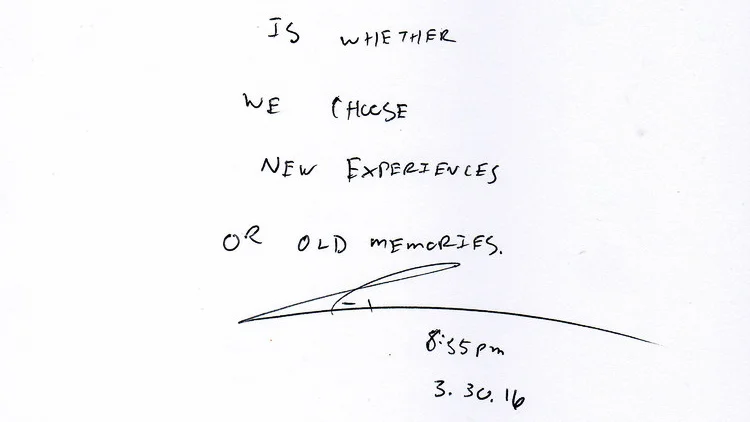 IS WHETHER
WE CHOOSE
NEW EXPERIENCES
OR OLD MEMORIES.
8:55pm
3.30.16